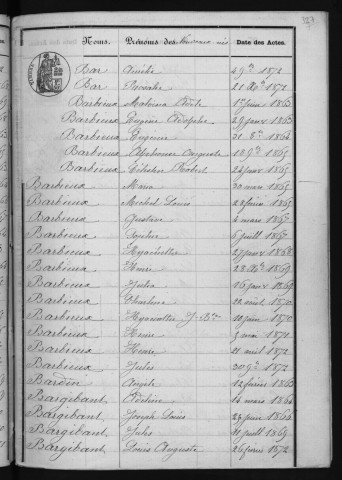 Noms. Prénoms des Nouveaux nés Date des Actes.
Bar 4 9bre 1872
Bar 21 1872
Barbieux Malvina 1er juin 1863
Barbieux Eugène Adolphe 29 janv 1863
Barbieux Eugénie 31 1864
Barbieux Alphonse Auguste 18 9bre 1865
Barbieux Robert 24 janv 1865
Barbieux Maria 30 mars 1865
Barbieux Michel Louis 28 février 1865
Barbieux Gustave 4 mars 1867
Barbieux 6 juill 1867
Barbieux Hyacinthe 27 janv 1868
Barbieux Henri 28 1869
Barbieux Julia 16 janv 1869
Barbieux Charline 20 avril 1870
Barbieux J. Bte 10 juin 1870
Barbieux Henri 5 mai 1871
Barbieux Henri 11 avril 1872
Barbieux Jules 30 9bre 1872
Bardin Angèle 12 février 1863
Bargibant 14 mars 1864
Bargibant Joseph Louis 23 juin 1864
Bargibant Jules juill 1869
Bargibant Louis Auguste 26 février 1872